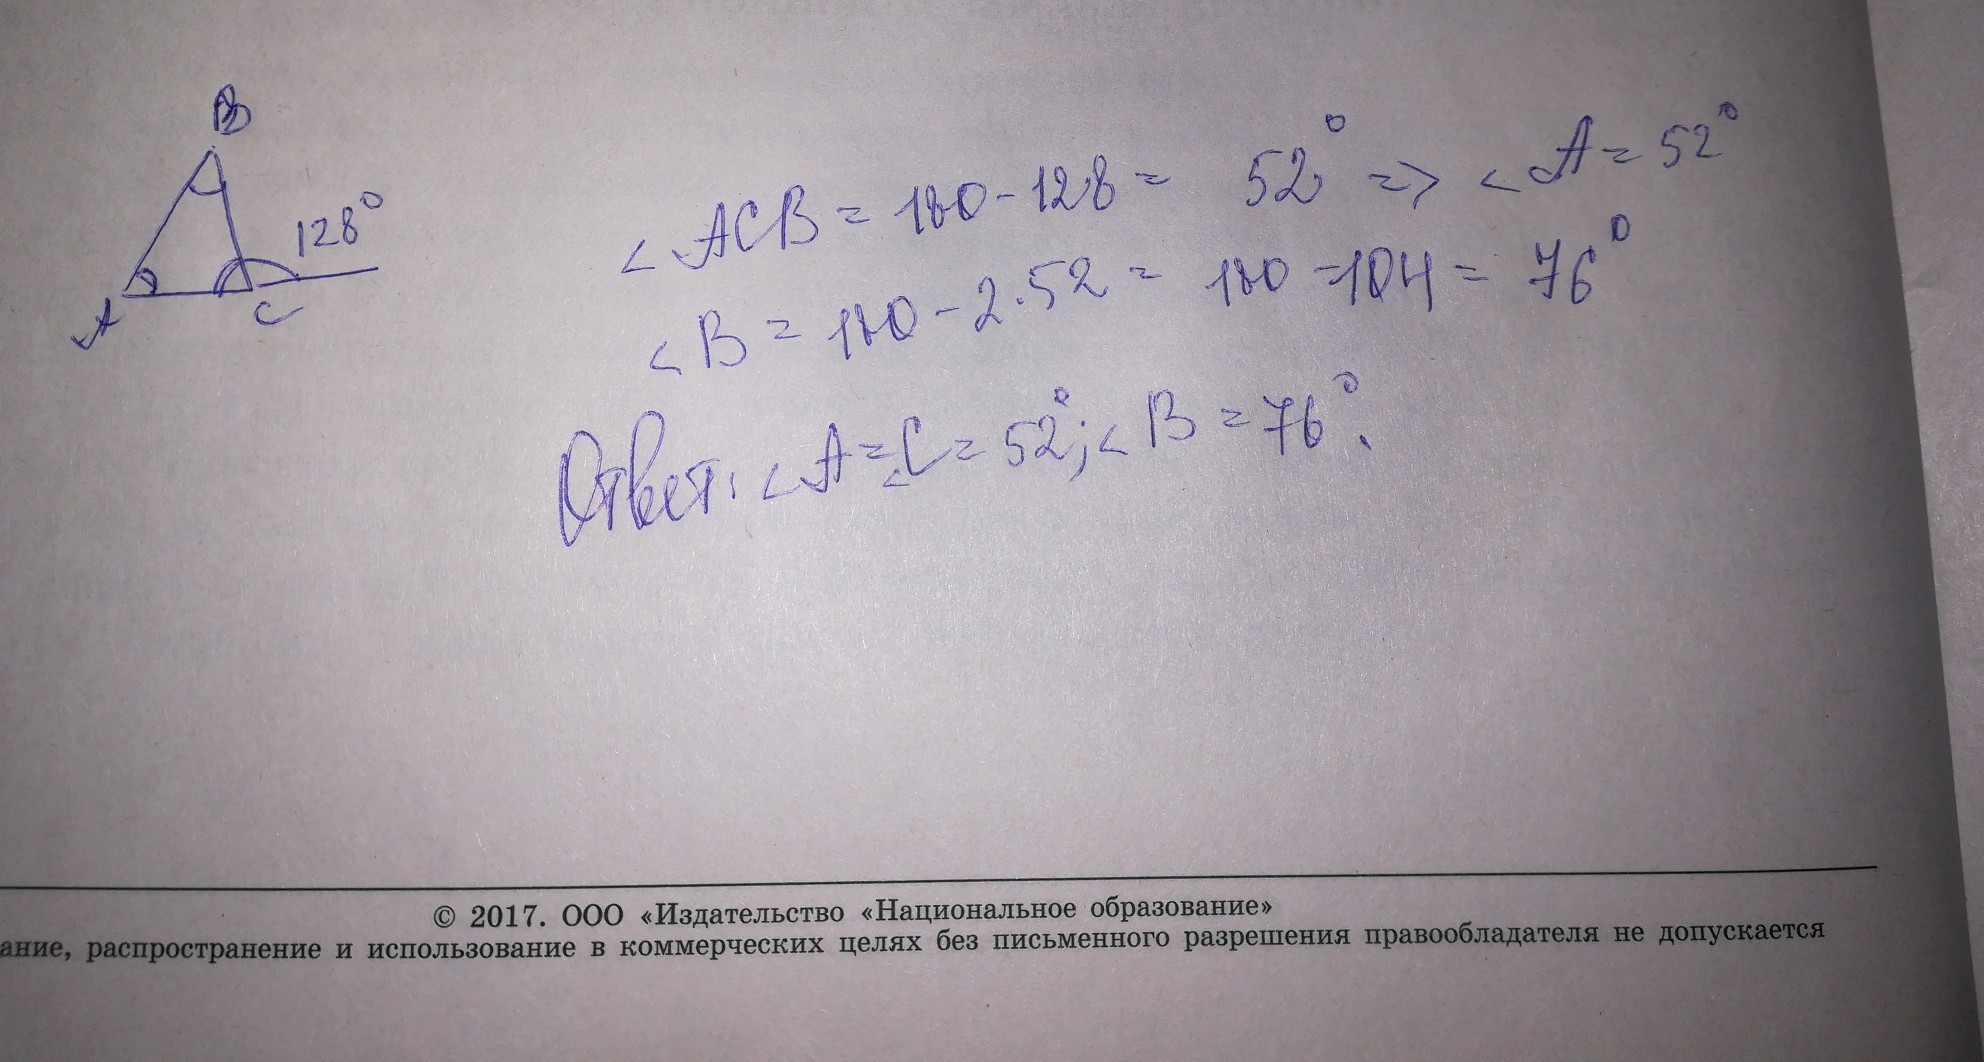 B
128°
A
C
< ACB = 180 - 128 = 52° => < A = 52°
< B = 180 - 2·52 = 180 - 104 = 76°
Ответ: < A = < C = 52°; < B = 76°.
© 2017. ООО «Издательство «Национальное образование»
ание, распространение и использование в коммерческих целях без письменного разрешения правообладателя не допускается